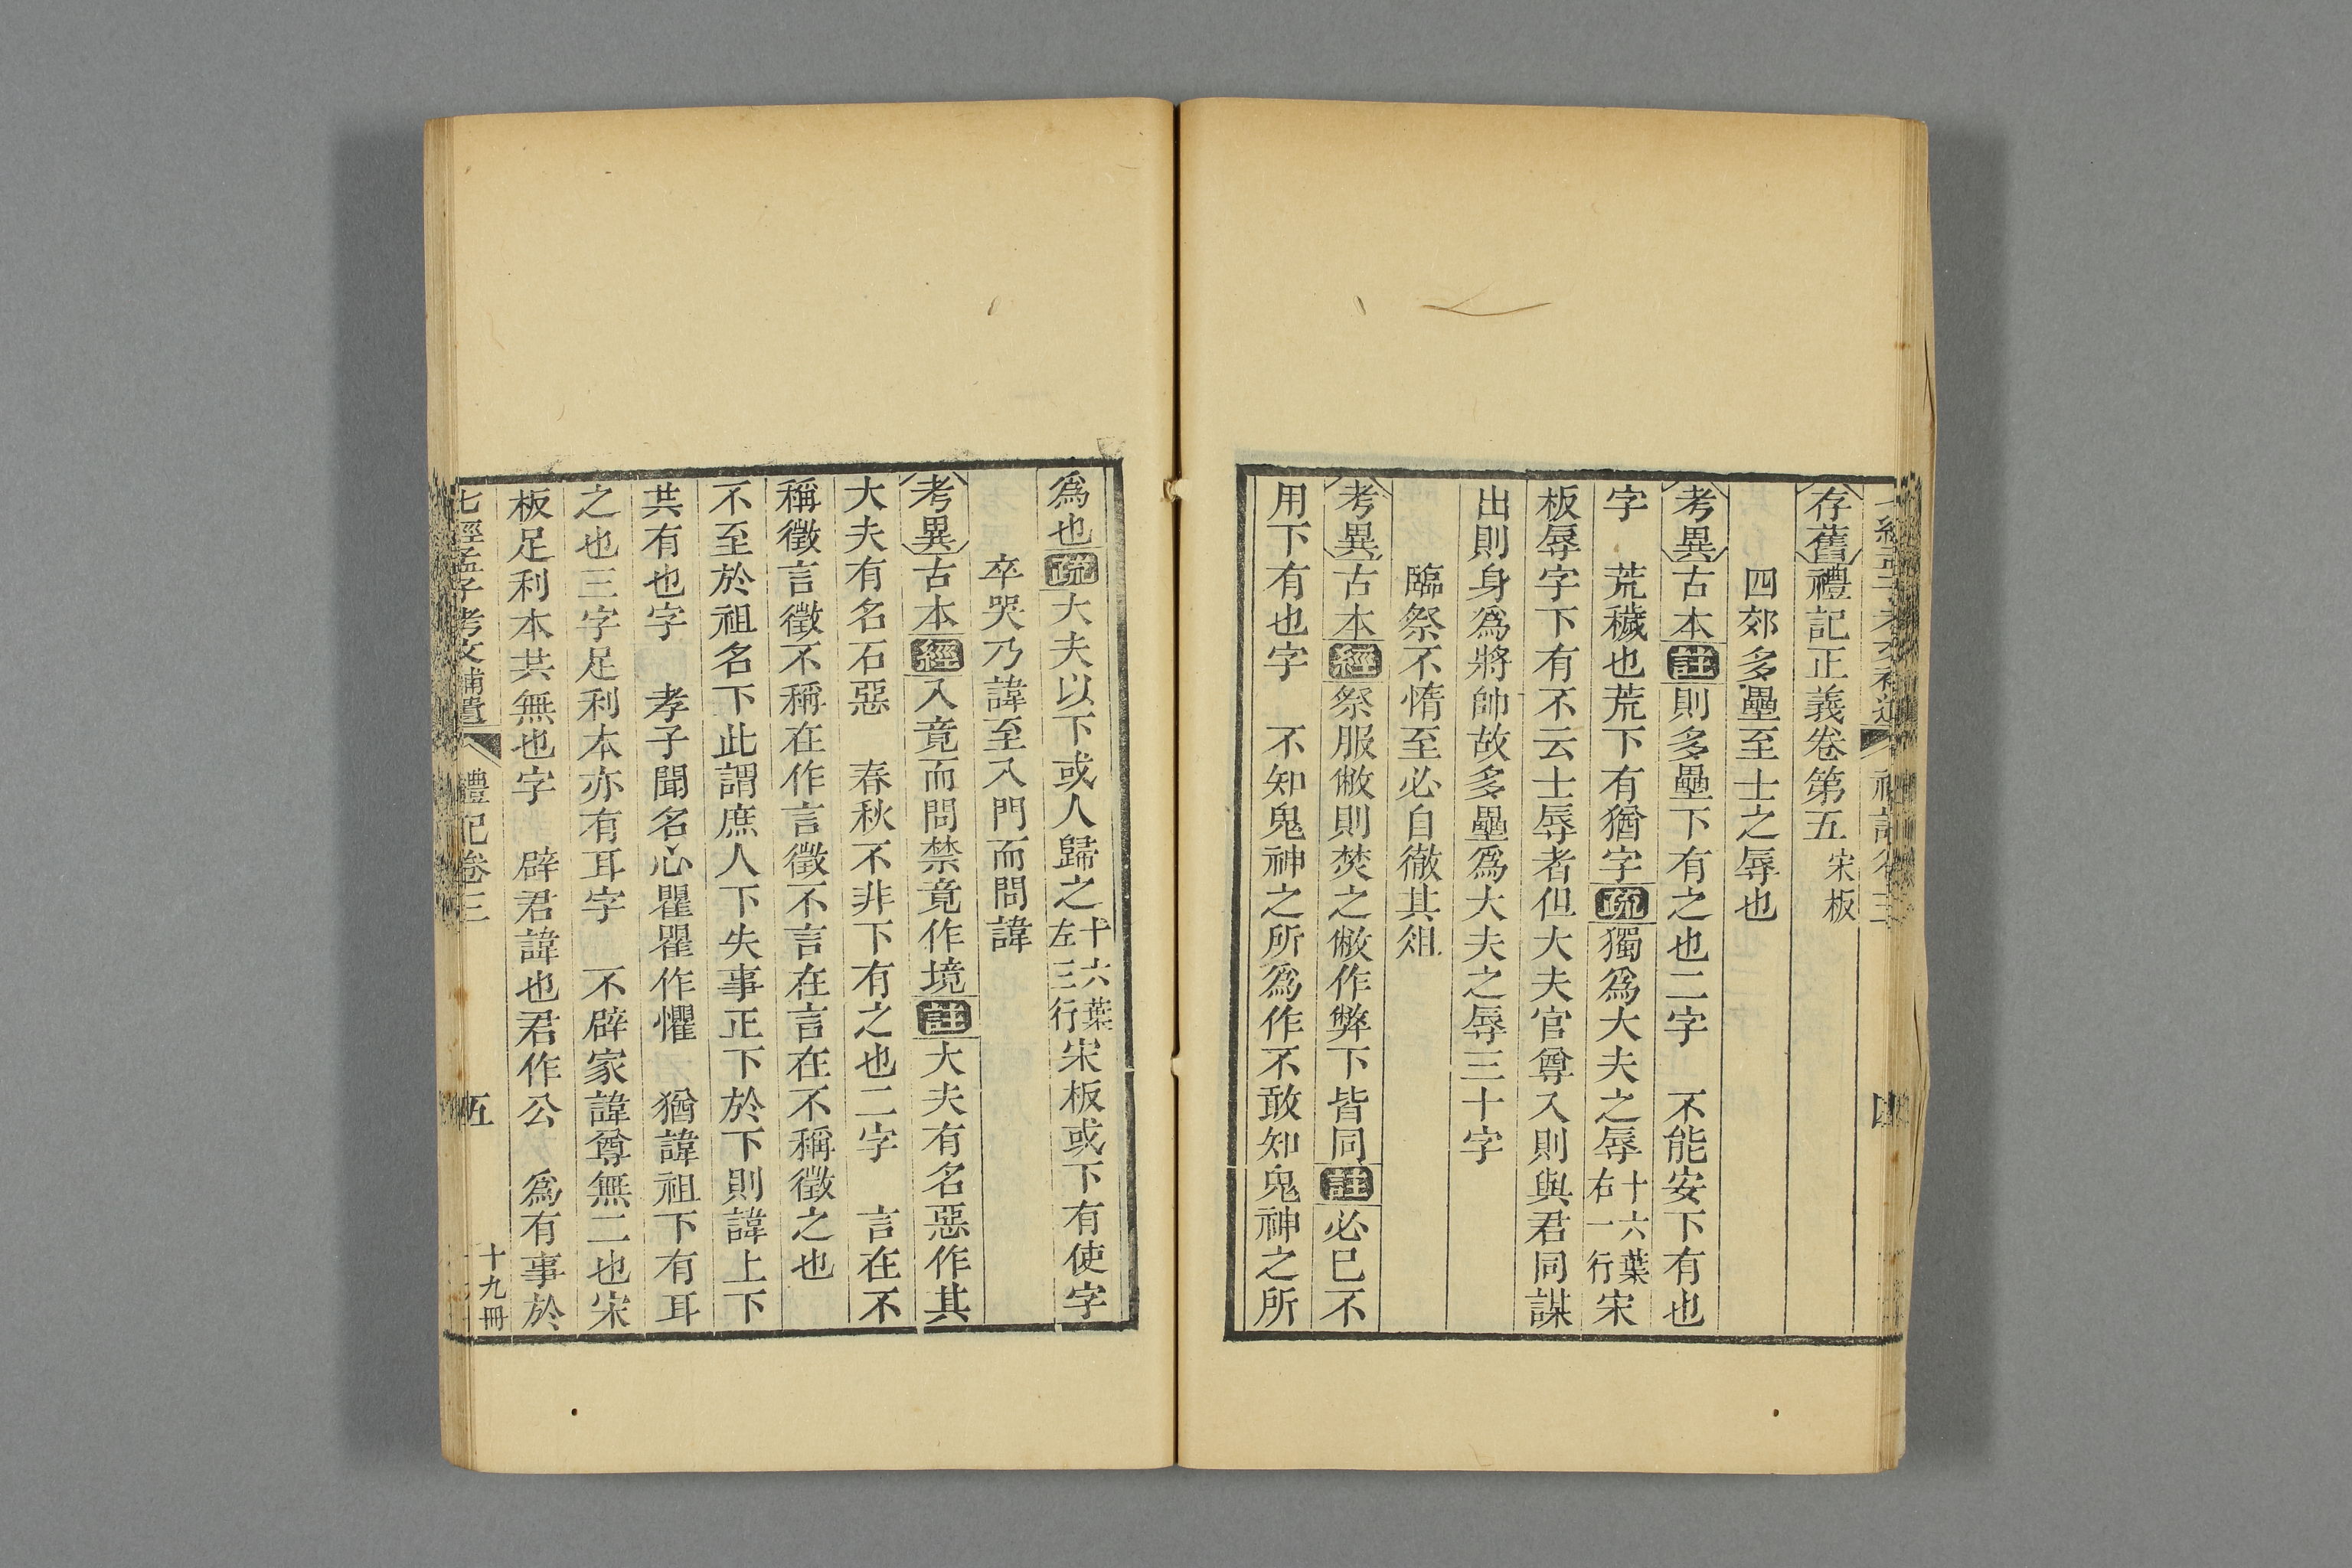 存舊禮記正義卷第五宋板
四郊多壘至士之辱也
考異古本註則多壘下有之也二字　不能安下有也
字　荒穢也荒下有猶字疏獨爲大夫之辱十六葉右一行宋
板辱字下有不云士辱者但大夫官尊入則與君同謀
出則身爲將帥故多壘爲大夫之辱三十字
臨祭不惰至必自徹其俎
考異古本經祭服敝則焚之敝作弊下皆同註必巳不
用下有也字　不知鬼神之所爲作不敢知鬼神之所
爲也疏大夫以下或人歸之十六葉左三行宋板或下有使字
卒哭乃諱至入門而問諱
考異古本經入竟而問禁竟作境註大夫有名惡作其
大夫有名石惡　春秋不非下有之也二字　言在不
稱徵言徵不稱在作言徵不言在言在不稱徵之也
不至於祖名下此謂庶人下失事正下於下則諱上下
共有也字　孝子聞名心瞿瞿作懼　猶諱祖下有耳
之也三字足利本亦有耳字　不辟家諱尊無二也宋
板足利本共無也字　辟君諱也君作公　爲有事於
七經孟子考文補遺　禮記卷三　五　十九冊